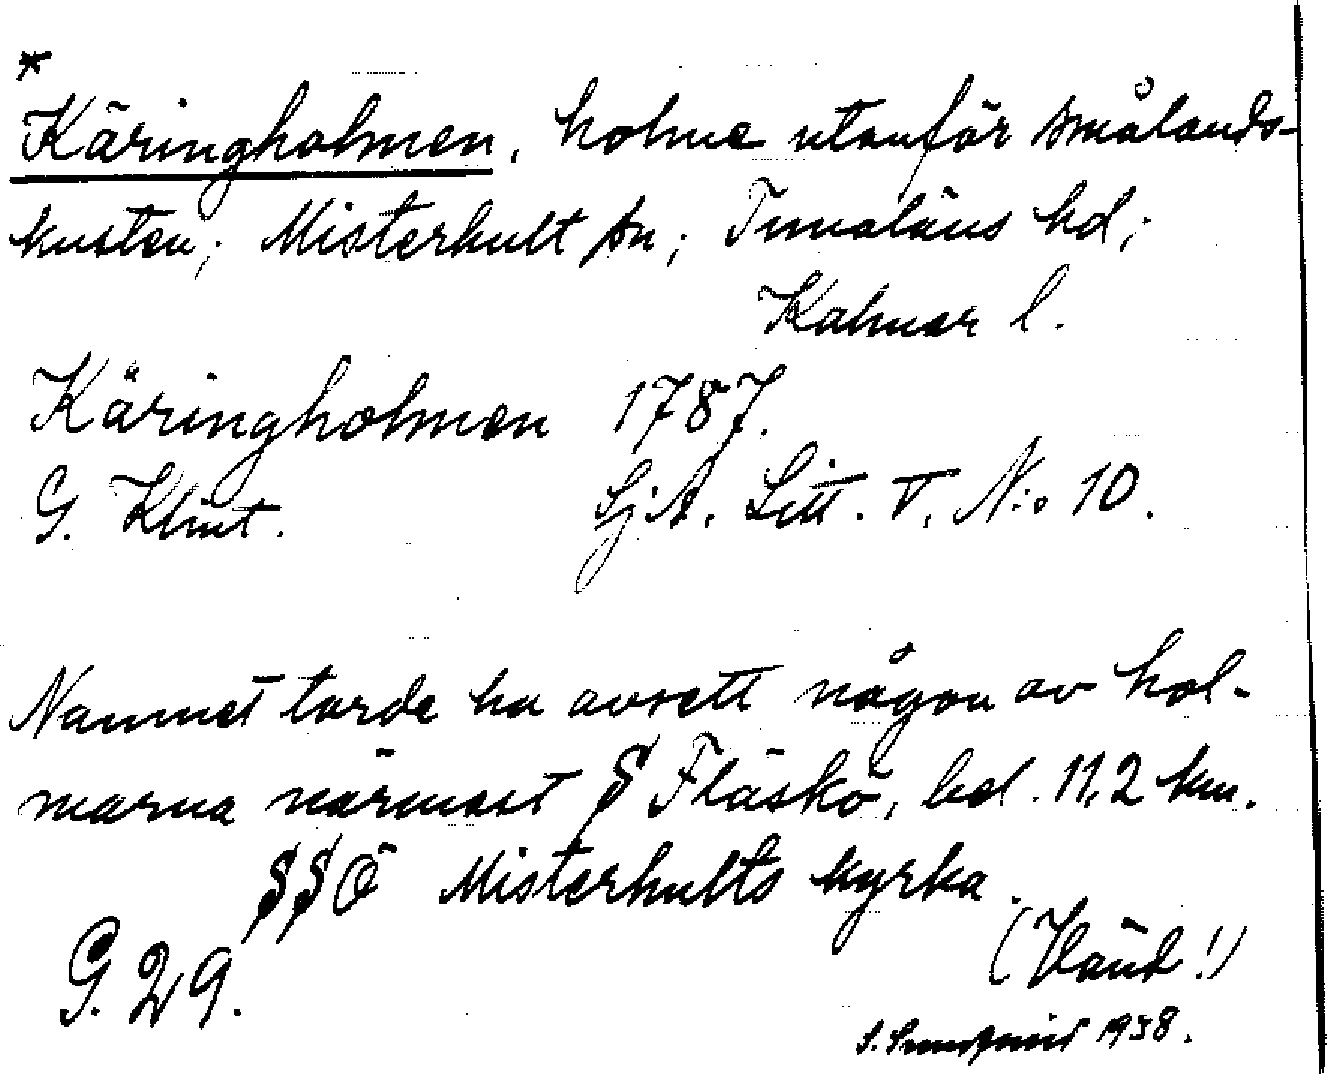 *
Käringholmen, holme utanför smålands-
kusten; Misterhult sn; Tunaläns hd;
Kalmar l.
Käringholmen 1787.
G. Klint. SjA. Litt. V. N:o 10.
Namnet torde ha avsett någon av hol-
marna närmast S Fläskö, bel. 11,2 km.
SSÖ Misterhults kyrka.
(Vänd!)
G. 29.
1938.